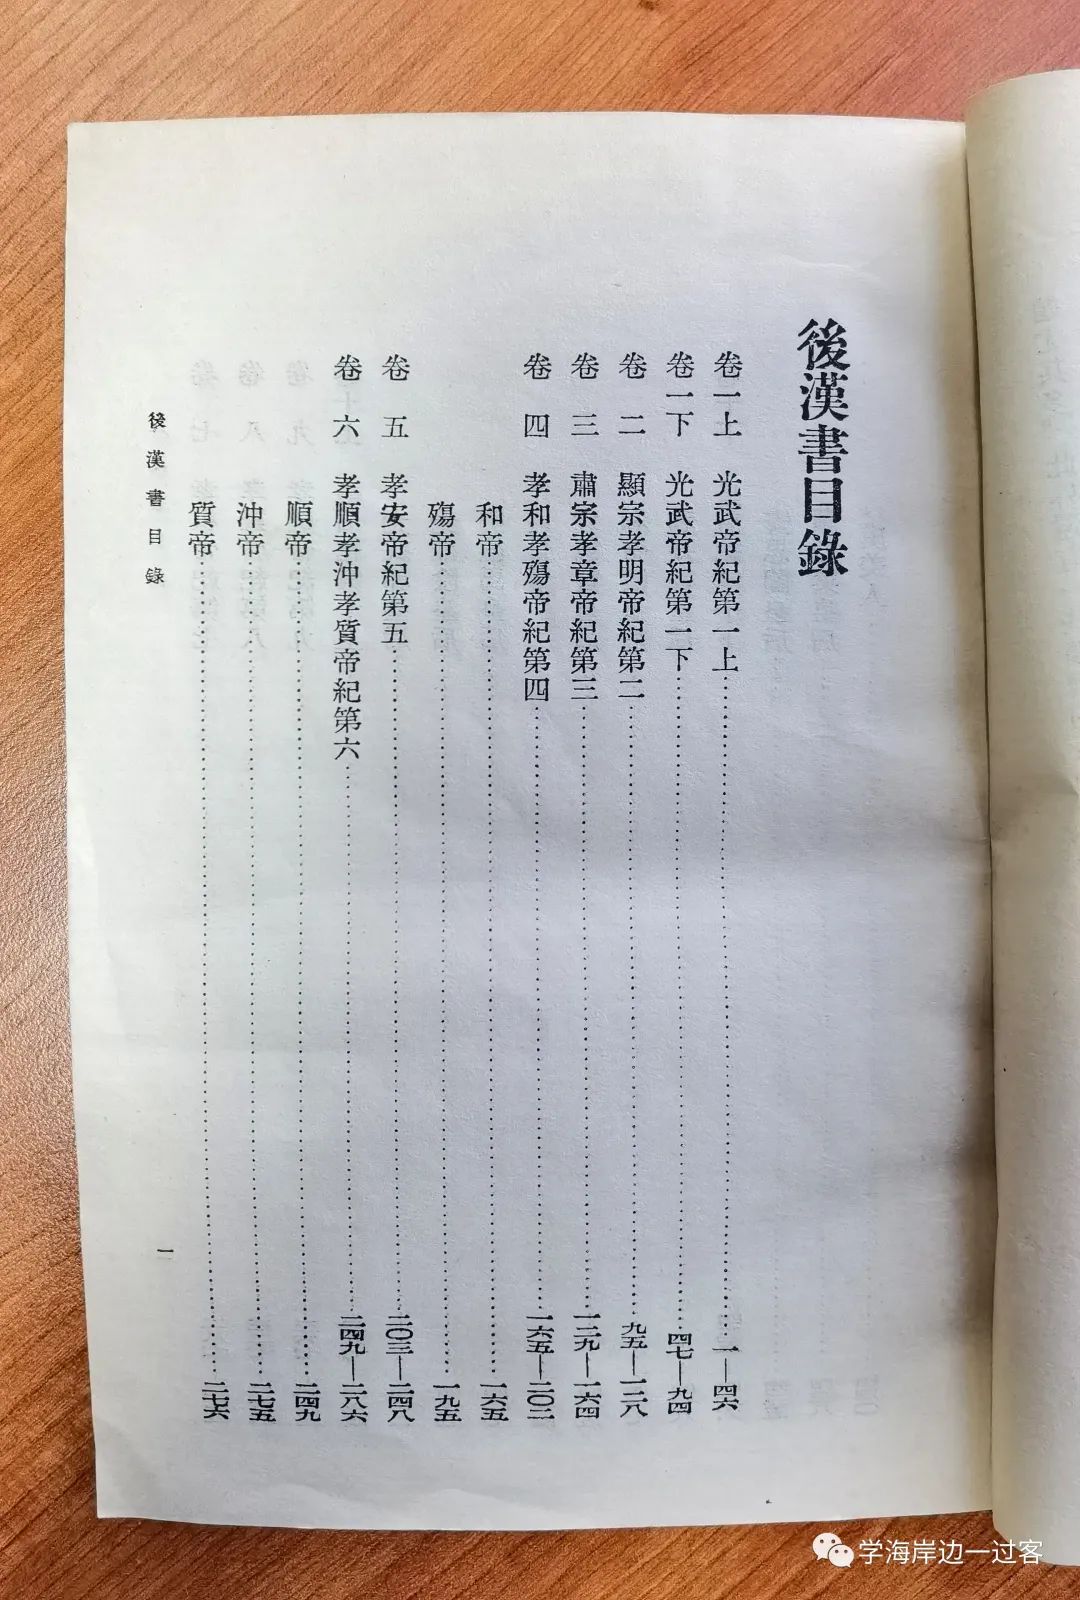 後漢書目錄
卷一上 光武帝紀第一上…………一—四六
卷一下 光武帝紀第一下…………四七—九四
卷 二 顯宗孝明帝紀第二…………九五—一二八
卷 三 肅宗孝章帝紀第三…………一二九—一六四
卷 四 孝和孝殤帝紀第四…………一六五—二〇二
和帝…………一六五
殤帝…………一九五
卷 五 孝安帝紀第五…………二〇三—二四八
卷 六 孝順孝沖孝質帝紀第六…………二四九—二八六
順帝…………二四九
沖帝…………二七五
質帝…………二七六
後漢書目錄
一
学海岸边一过客